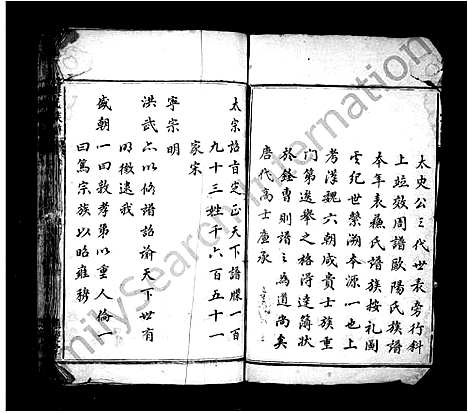 太史公三代世表旁行斜
上竝效周譜歐陽氏族譜
奉年表蘇氏譜族按礼圖
世繫溯本源一也上
考漢魏六朝咸貴士族重
門第選舉之格得達簿狀
於銓曹則譜之為道尚矣
唐代高士廉承
太宗詔旨定正天下譜牒一百
九十三姓千六百五十一
家宋
寧宗明
洪武亦以修譜詔諭天下世有
明徵逮我
盛朝一曰敦孝弟以重人倫一
曰篤宗族以昭雍穆
FamilySearch International